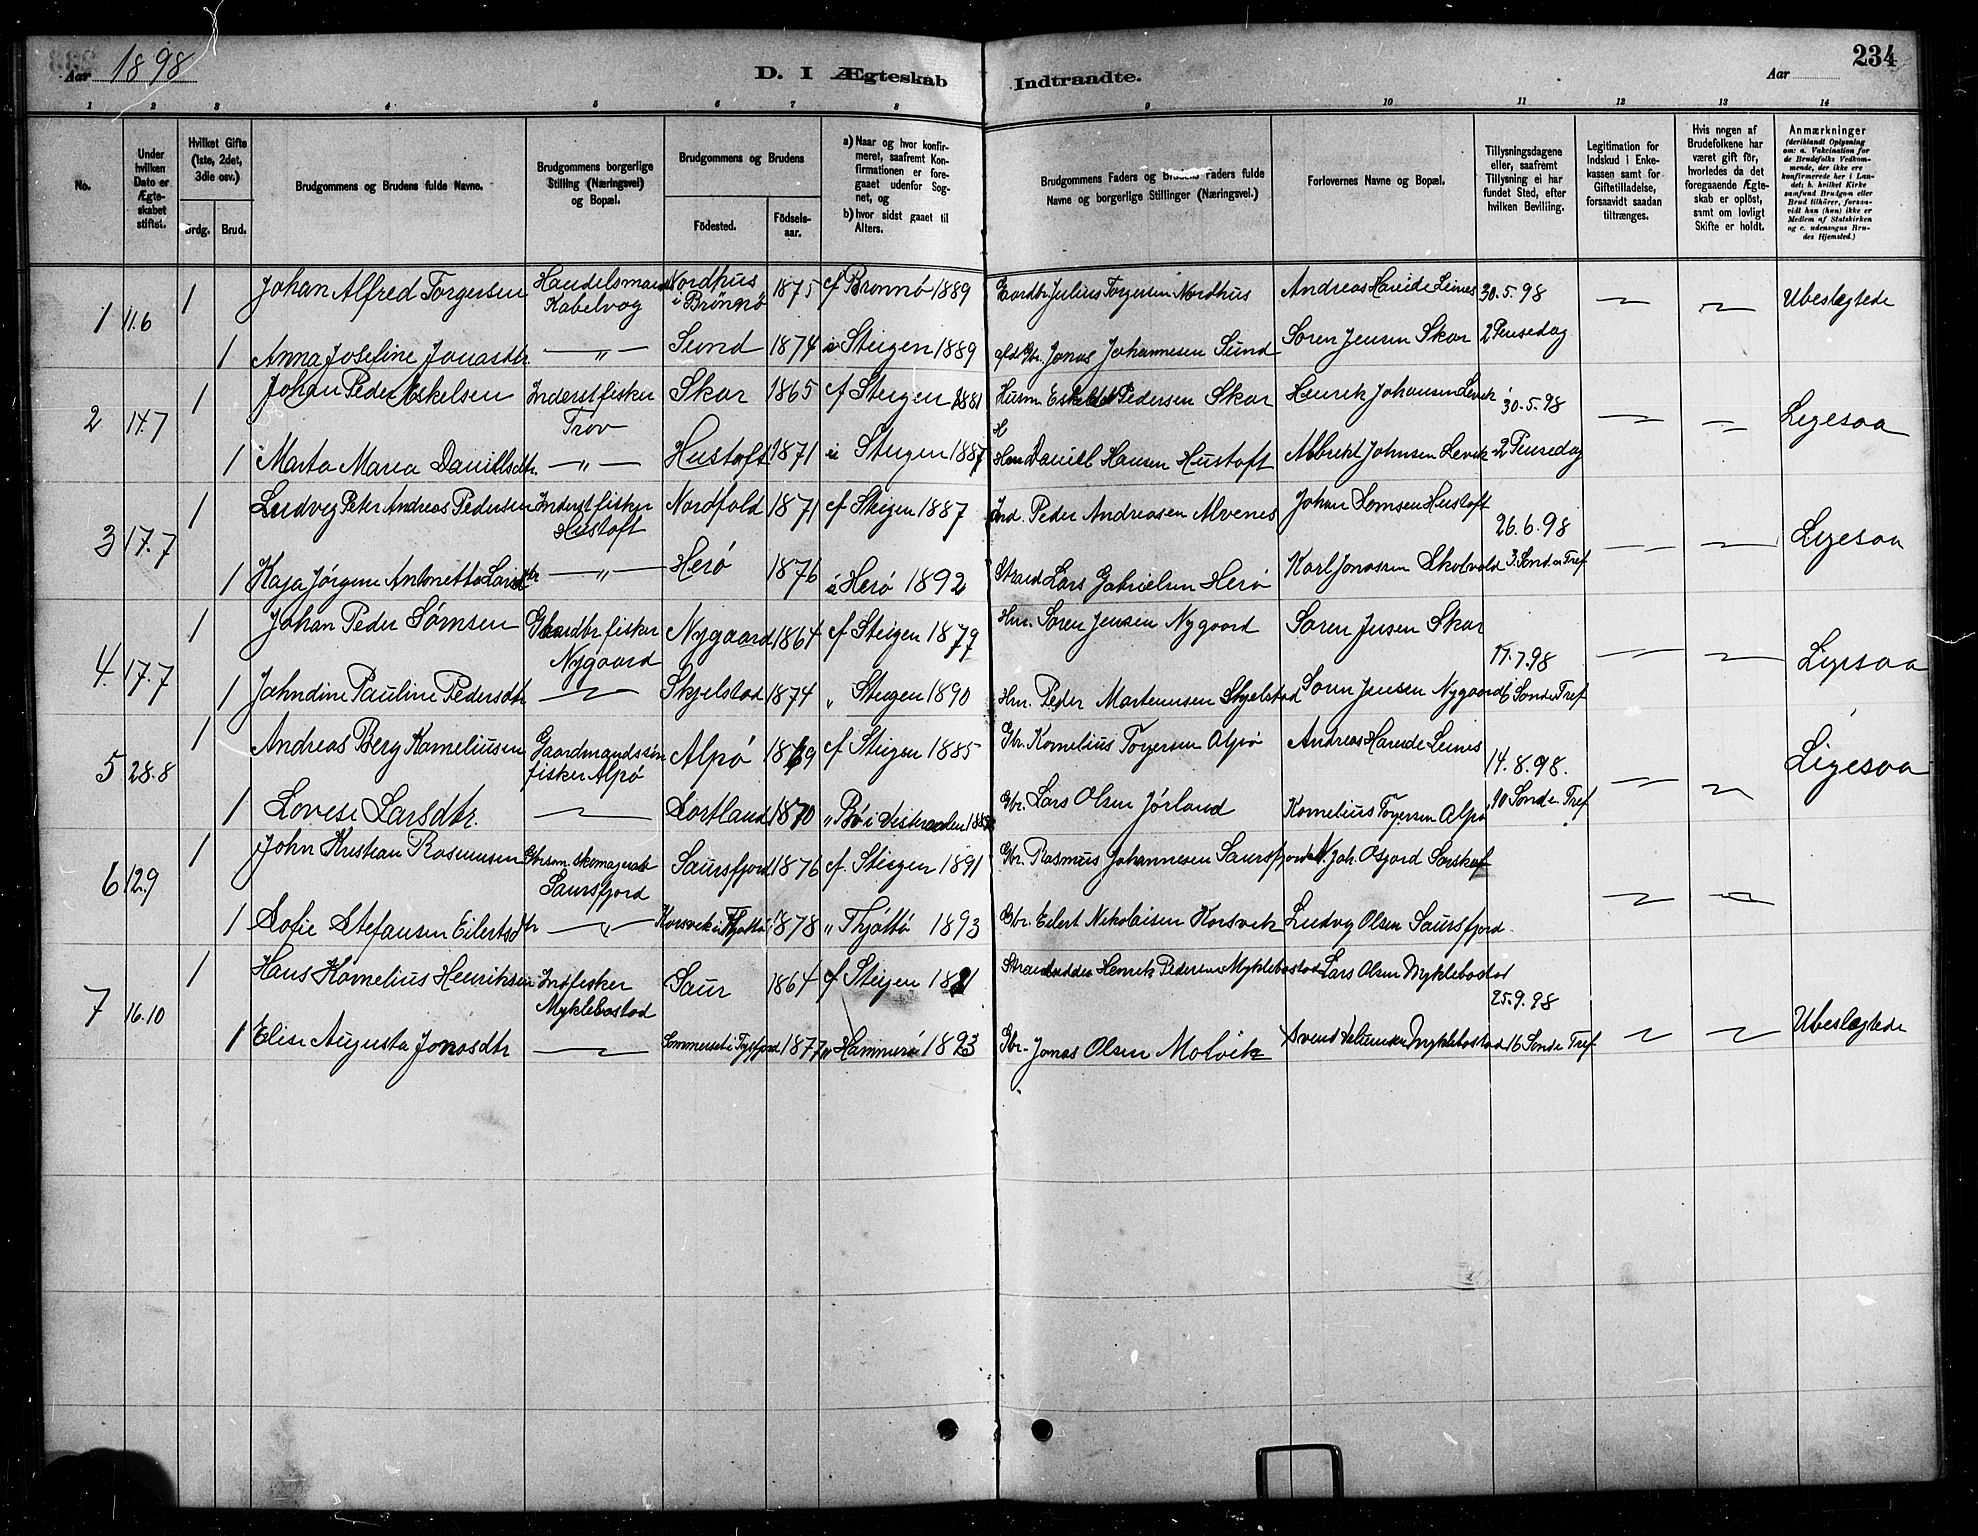 Aar 1898
D. I Ægteskab Indtraadte.
Aar
234
1 2 3 4 5 6 7 8 9 10 11 12 13 14
No.
Under hvilken Dato er Ægteskabet stiftet.
Hvilket Gifte (1ste, 2det, 3die osv.)
Brdg. Brud.
Brudgommens og Brudens fulde Navne.
Brudgommens borgerlige Stilling (Næringsvei) og Bopæl.
Brudgommens og Brudens
Födested. Födsels-aar.
a) Naar og hvor konfirmeret, saafremt Konfirmationen er foregaaet udenfor Sognet, og
b) hvor sidst gaaet til Alters.
Brudgommens Faders og Brudens Faders fulde Navne og borgerlige Stillinger (Næringsvei.)
Forlovernes Navne og Bopæl.
Tillysningsdagene eller, saafremt Tillysning ei har fundet Sted, efter hvilken Bevilling.
Legitimation for Indskud i Enkekassen samt for Giftetilladelse, forsaavidt saadan tiltrænges.
Hvis nogen af Brudefolkene har været gift för, hvorledes da det foregaaende Ægteskab er oplöst, samt om lovligt Skifte er holdt.
Anmærkninger (deriblandt Oplysning om: a. Vakcination for de Brudefolks Vedkommende, der ikke ere konfirmerede her i Landet; b. hvilket Kirkesamfund Brudgom eller Brud tilhörer, forsaavidt han (hun) ikke er Medlem af Statskirken og c. udensogns Brudes Hjemsted.)
1 11.6 1 Johan Alfred Torgersen Handelsmand Kabelvog Nordhus i Brønnø 1875 cf Brønnø 1889 Gaardbr Julius Torgersen Nordhus Andreas Haride Leines 30.5.98 Ubeslægtede
1 Anna Josefine Jonasdtr. — " — Sund 1874 i Steigen 1889 Gbr. Jonas Johannesen Sund Soren Jensen Skar 2 Pinsedag
2 17.7 1 Johan Peder Eskelsen Inderst fisker Trov Skar 1865 cf Steigen 1881 Husm Eskild Pedersen Skar Henrik Johansen Levik 30.5.98 Ligesaa
1 Marta Maria Danielsdtr. — " — Hustoft 1871 i Steigen 1887 Daniel Hansen Hustoft Albrekt Johnsen Levik 2 Pinsedag
3 17.7 1 Ludvig Peter Andreas Pedersen Inderst fisker Hustoft Nordfold 1871 cf Steigen 1887 Ind. Peder Andreasen Alvenes Johan Lomsen Hustoft 26.6.98 Ligesaa
1 Kaja Jörgine Antonette Larsdtr — " — Herö 1876 i Herö 1892 Strand Lars Gabrielsen Herö Karl Jonassen Skolvold 3. Sond. e Tref
4. 17.7 1 Johan Peder Sømsen Gaardbr fisker Nygaard Nygaard 1864 cf Steigen 1879 Hm. Soren Jensen Nygaard Soren Jensen Skar 17.7.98 Ligesaa
1 Jahndine Pauline Pedersdtr Skjelstad 1874 " Steigen 1890 Hm. Peder Martenusen Skjelstad Soren Jensen Nygaard 6 Sond e Tref
5 28.8 1 Andreas Berg Kornelíusen Gaardmandssön fisker Alpö Alpö 1869 cf Steigen 1885 Gbr. Kornelius Torgersen Alpö Andreas Haride Leines 14.8.98. Ligesaa
1 Lovise Larsdtr. Sortland 1870 " Bö i Vesteraalen Gbr. Lars Olsen Jørland Kornelius Torgersen Alpö 10 Sond e Tref
6 12.9 1 John Kristian Rasmussen Saursfjord Saursfjord 1876 cf. Steigen 1891 Gbr. Rasmus Johannesen Saursfjord
1 Sofie Stefansen Eilertsdtr — " — Korsvik i Tjøtta 1878 " Thjøttø 1893 Gbr. Eilert Nikolaisen Korsvik Ludvig Olsen Saursfjord
7 16.10 1 Hans Kornelius Henriksen Indfisker Myklebostad Saur 1864 cf Steigen 1881 Strandsidder Henrik Pedersen Myklebostad Lars Olsen Myklebostad 25.9.98 Ubeslægtede
1 Elise Augusta Jonasdtr Sommerset i Tysfjord 1877 " Hammerö 1893 Gbr. Jonas Olsen Molvik Myklebostad 16 Sond e Tref.